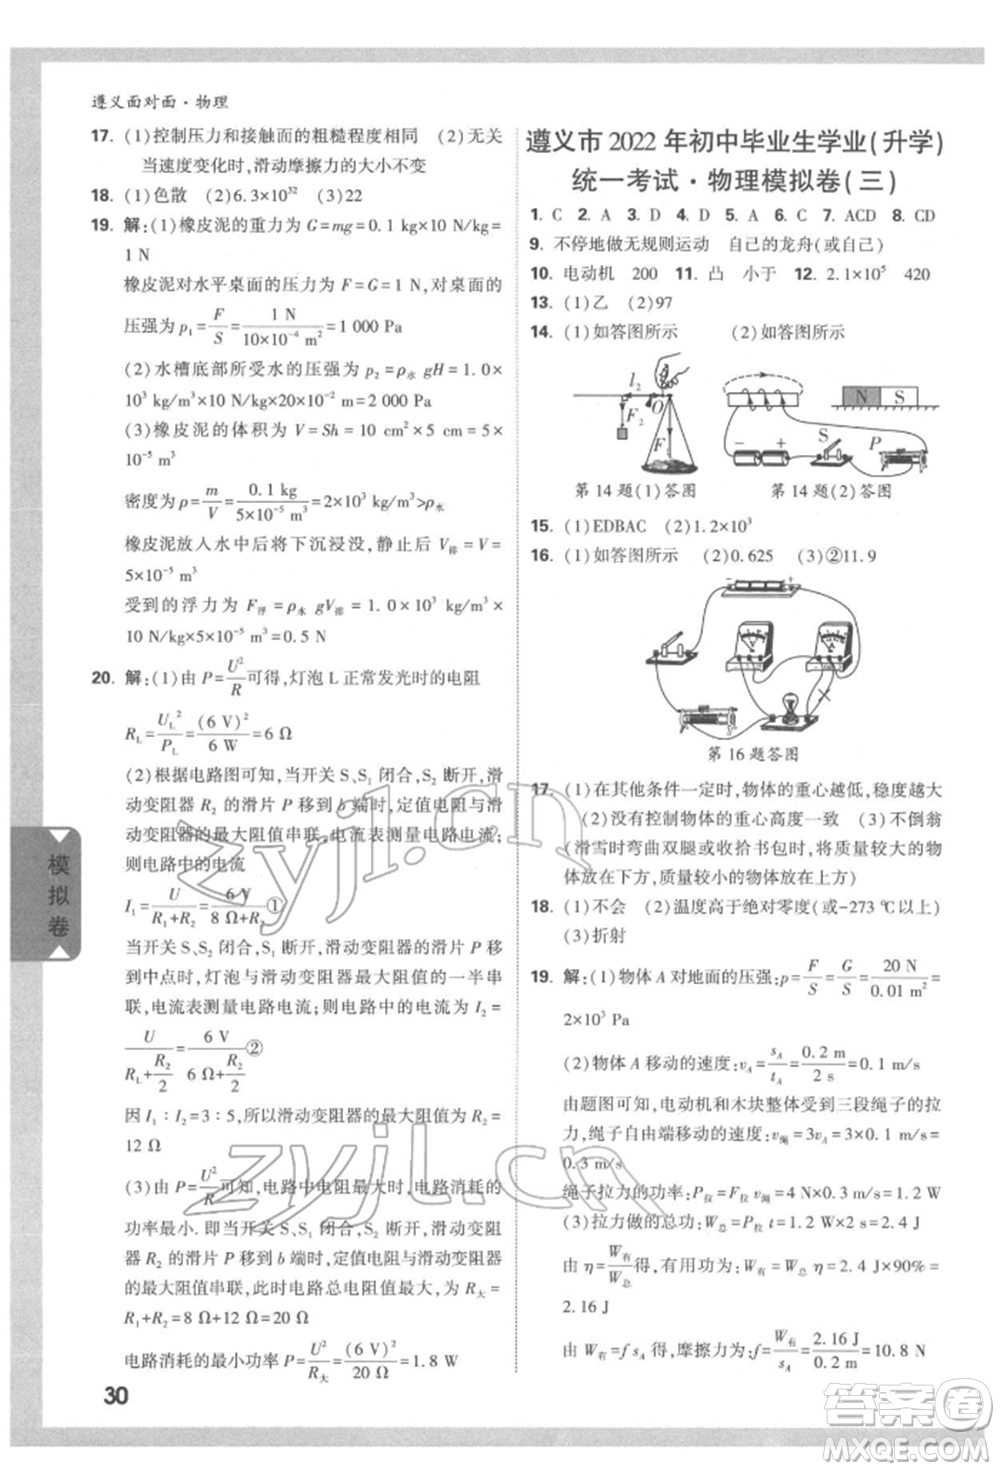 遵义面对面·物理
17. (1)控制压力和接触面的粗糙程度相同 (2)无关
当速度变化时,滑动摩擦力的大小不变
18. (1)色散 (2)6.3×10³² (3)22
19. 解:(1)橡皮泥的重力为 G=mg=0.1 kg×10 N/kg=
1 N
橡皮泥对水平桌面的压力为 F=G=1 N,对桌面的
压强为 p₁=F/S=1 N/(10×10⁻⁴ m²)=1 000 Pa
(2)水槽底部所受水的压强为 p₂=ρ水 gH=1.0×
10³ kg/m³×10 N/kg×20×10⁻² m=2 000 Pa
(3)橡皮泥的体积为 V=Sh=10 cm²×5 cm=
密度为 ρ=m/V=0.1 kg/(5×10⁻⁵ m³)=2×10³ kg/m³>ρ水
橡皮泥放入水中后将下沉浸没,静止后 V排=V=
5×10⁻⁵ m³
受到的浮力为 F浮=ρ水 gV排=1.0×10³ kg/m³×
10 N/kg×5×10⁻⁵ m³=0.5 N
20. 解:(1)由 P=U²/R可得,灯泡 L 正常发光时的电阻
R_L=U_L²/P_L=(6 V)²/6 W=6 Ω
(2)根据电路图可知,当开关 S、S₁ 闭合,S₂ 断开,滑
动变阻器 R₂ 的滑片 P 移到 b 端时,定值电阻与滑
动变阻器的最大阻值串联,电流表测量电路电流;
则电路中的电流
I₁=U/(R₁+R₂)=6 V/(8 Ω+R₂)①
当开关 S、S₂ 闭合,S₁ 断开,滑动变阻器的滑片 P 移
到中点时,灯泡与滑动变阻器最大阻值的一半串
联,电流表测量电路电流;则电路中的电流 I₂=
U/(R_L+R₂/2)=6 V/(6 Ω+R₂/2)②
因 I₁:I₂=3:5,所以滑动变阻器的最大阻值 R₂=
12 Ω
(3)由 P=U²/R可知,电路中电阻最大时,电路消耗的
功率最小. 即当开关 S、S₁ 闭合,S₂ 断开,滑动变阻
器 R₂ 的滑片 P 移到 b 端时,定值电阻与滑动变阻器
的最大阻值串联,此时电路总电阻最大,R大=
R₁+R₂=8 Ω+12 Ω=20 Ω
电路消耗的最小功率 P=U²/R大=(6 V)²/20 Ω=1.8 W
30
模拟卷
遵义市 2022 年初中毕业生学业(升学)
统一考试·物理模拟卷(三)
1. C 2. A 3. D 4. D 5. B 6. C 7. ACD 8. CD
9. 不停地做无规则运动 自己的龙舟(或自己)
10. 电动机 200 11. 凸 小于 12. 2.1×10⁵ 420
13. (1)乙 (2)97
14. (1)如答图所示 (2)如答图所示
l₂ O F₂ F
N S
− + S P
第 14 题(1)答图 第 14 题(2)答图
15. (1)EDBAC (2)1.2×10³
16. (1)如答图所示 (2)0.625 (3)②11.9
− +
第 16 题答图
17. (1)在其他条件一定时,物体的重心越低,稳度越大
(2)没有控制物体的重心高度一定 (3)不倒翁
(滑雪时弯曲双腿或收拾书包时,质量较大的物
体放在下方,质量较小的物体放在上方)
18. (1)不会 (2)温度高于绝对零度(或-273 ℃以上)
(3)折射
19. 解:(1)物体 A 对地面的压强:p=F/S=G/S=20 N/0.01 m²=
2×10³ Pa
(2)物体 A 移动的速度:v_A=s_A/t_A=0.2 m/2 s=0.1 m/s
由题图可知,电动机和木块整体受到三段绳子的拉
力,绳子自由端移动的速度:v绳=3v_A=3×0.1 m/s=
0.3 m/s
绳子拉力的功率:P拉=F拉 v绳=4 N×0.3 m/s=1.2 W
(3)拉力做的总功:W总=P拉 t=1.2 W×2 s=2.4 J
由 η=W有/W总得,有用功:W有=W总 η=2.4 J×90%=
2.16 J
由 W有=f s_A 得,摩擦力为:f=W有/s_A=2.16 J/0.2 m=10.8 N
zyjl.cn
zyjl.cn
答案圈
MXQE.COM